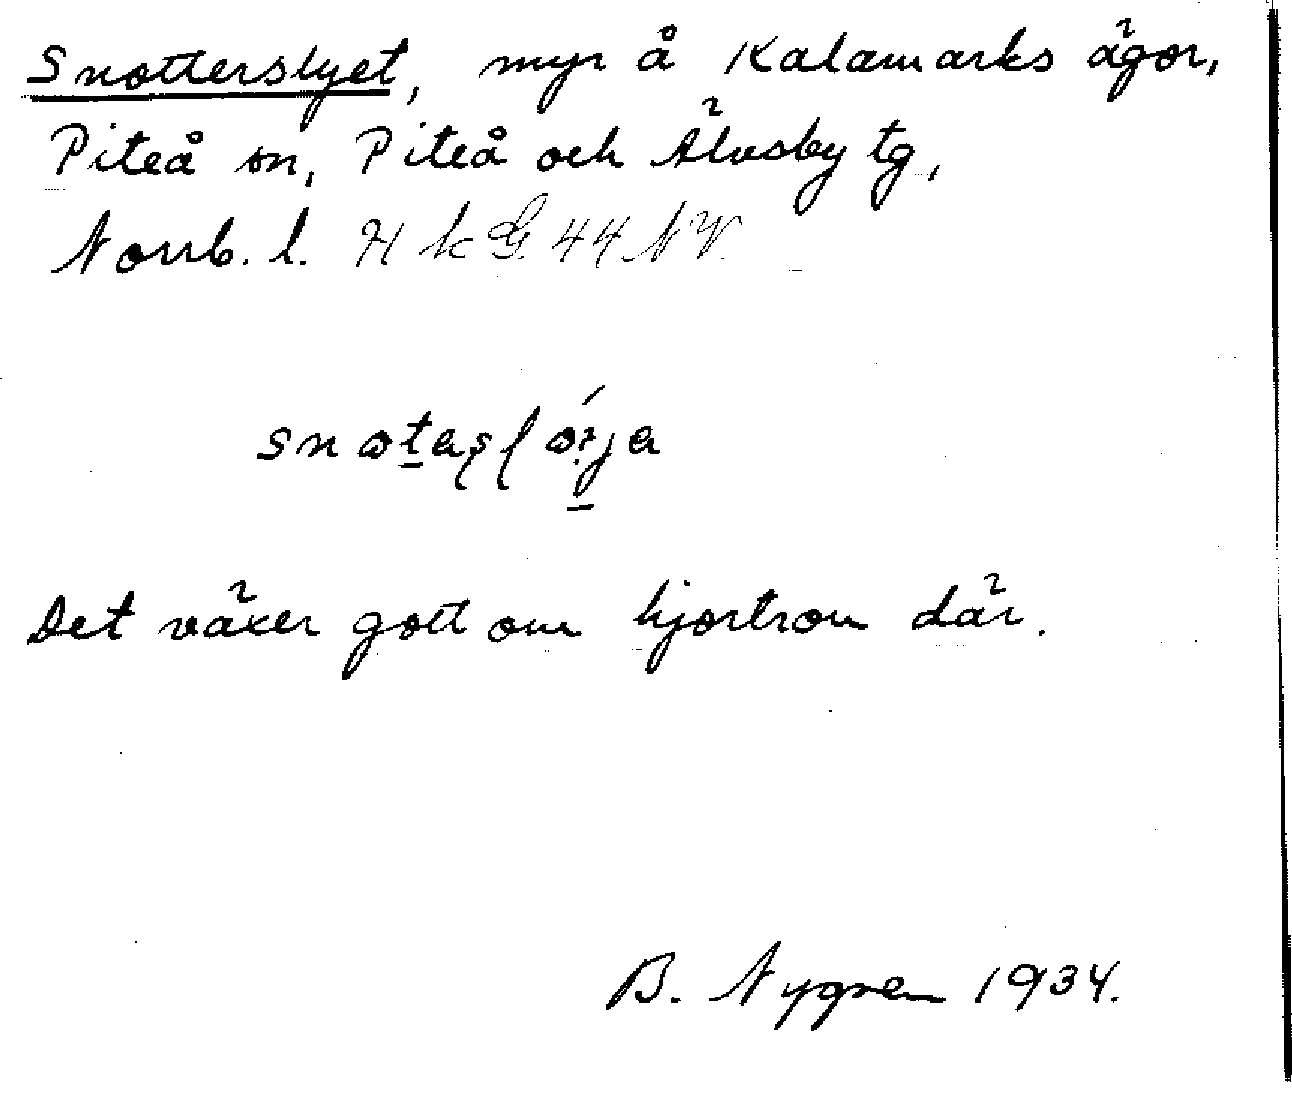 Snotterslyet, myr å Kalamarks ägor,
Piteå sn, Piteå och Älvsby tg,
Norrb. l. H k G. 44 NV.
Det växer gott om hjortron där.
B. Nygren 1934.